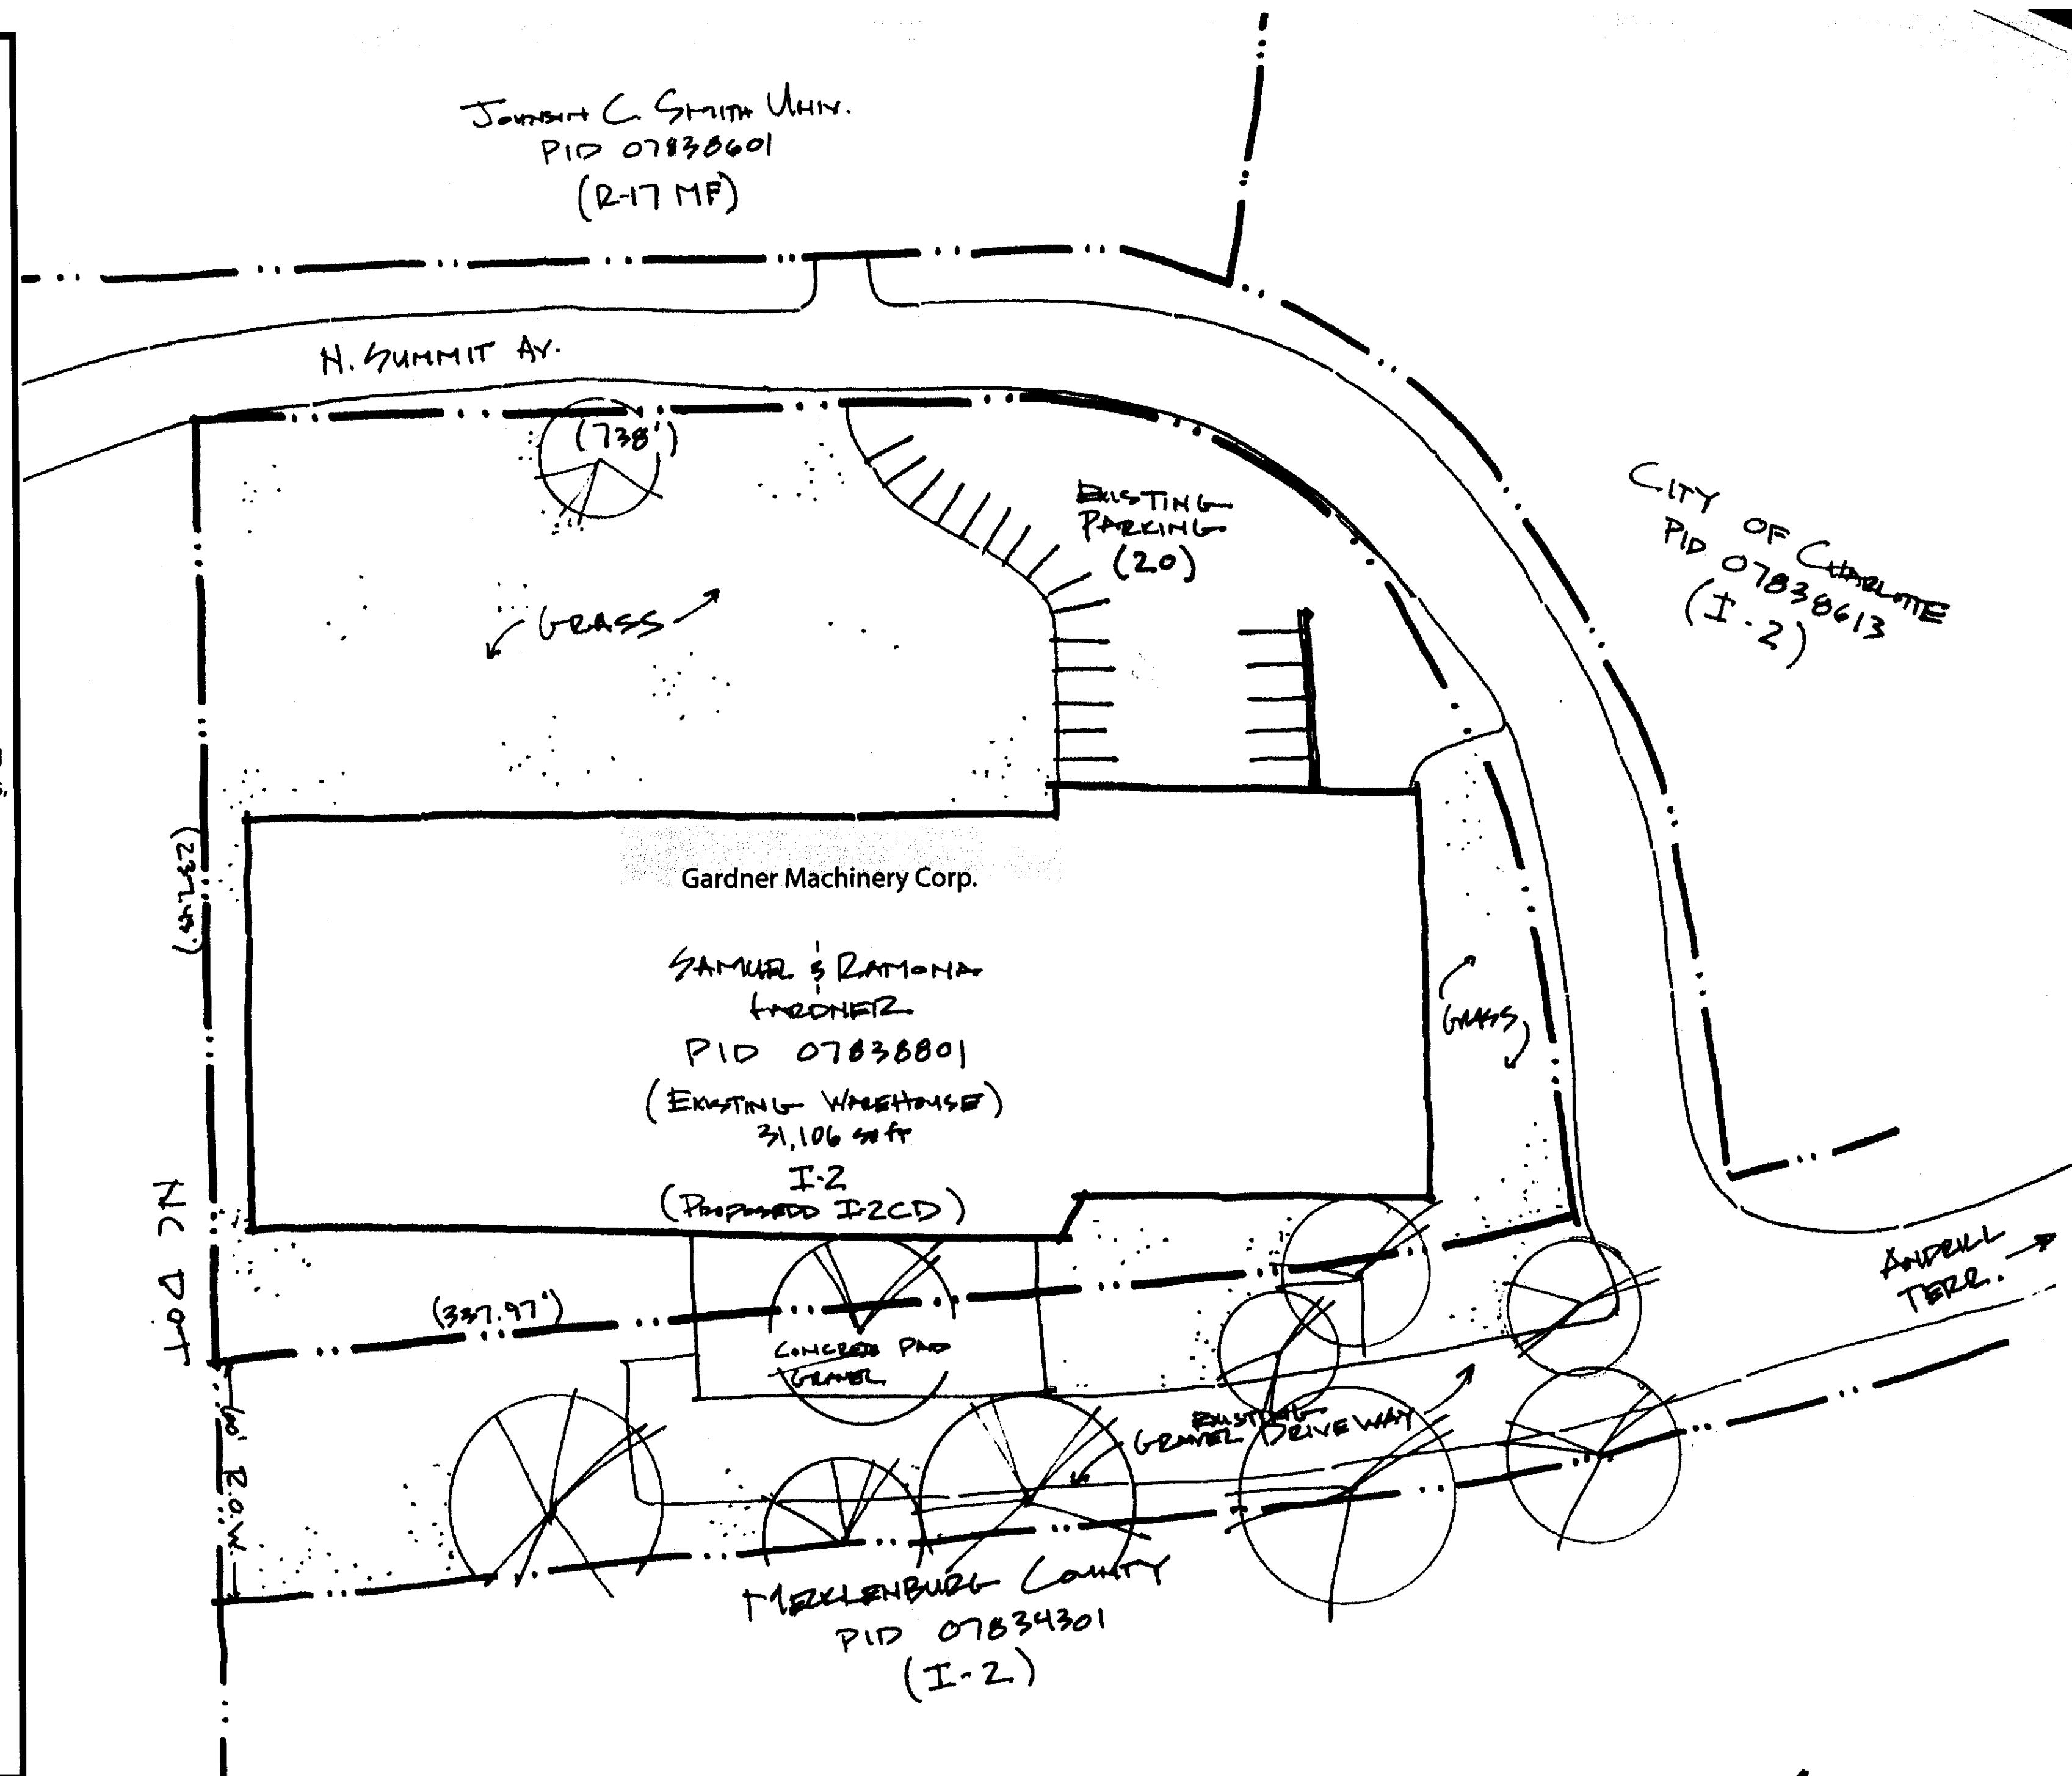 Johnson C. Smith Univ.
PID 07838601
(R-17 MF)
N. Summit Av.
(738')
Existing
Parking
(20)
City of Charlotte
PID 07838613
(I-2)
Grass
Gardner Machinery Corp.
Samuel & Ramona
Gardner
PID 07838801
(Existing Warehouse)
31,106 sq ft
I-2
(Proposedd I-2CD)
Grass
NC DOT
(337.97')
Concrete Pad
Gravel
Existing
Gravel Driveway
Andrill
Terr.
60' R.O.W.
Mecklenburg County
PID 07834301
(I-2)